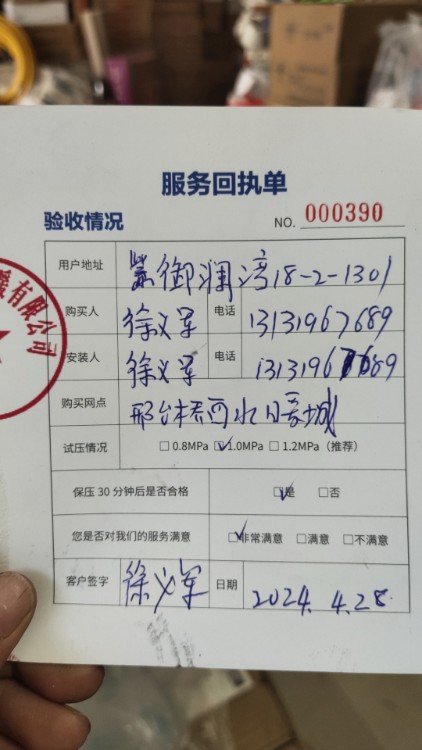 服务回执单
验收情况 NO. 000390
用户地址 紫御澜湾18-2-1301
购买人 徐义军 电话 13131967689
安装人 徐义军 电话 13131967689
购买网点 邢台桥西水暖城
试压情况 □ 0.8MPa ☑ 1.0MPa □ 1.2MPa（推荐）
保压 30 分钟后是否合格 ☑是 □否
您是否对我们的服务满意 ☑非常满意 □满意 □不满意
客户签字 徐义军 日期 2024.4.28.
有限公司